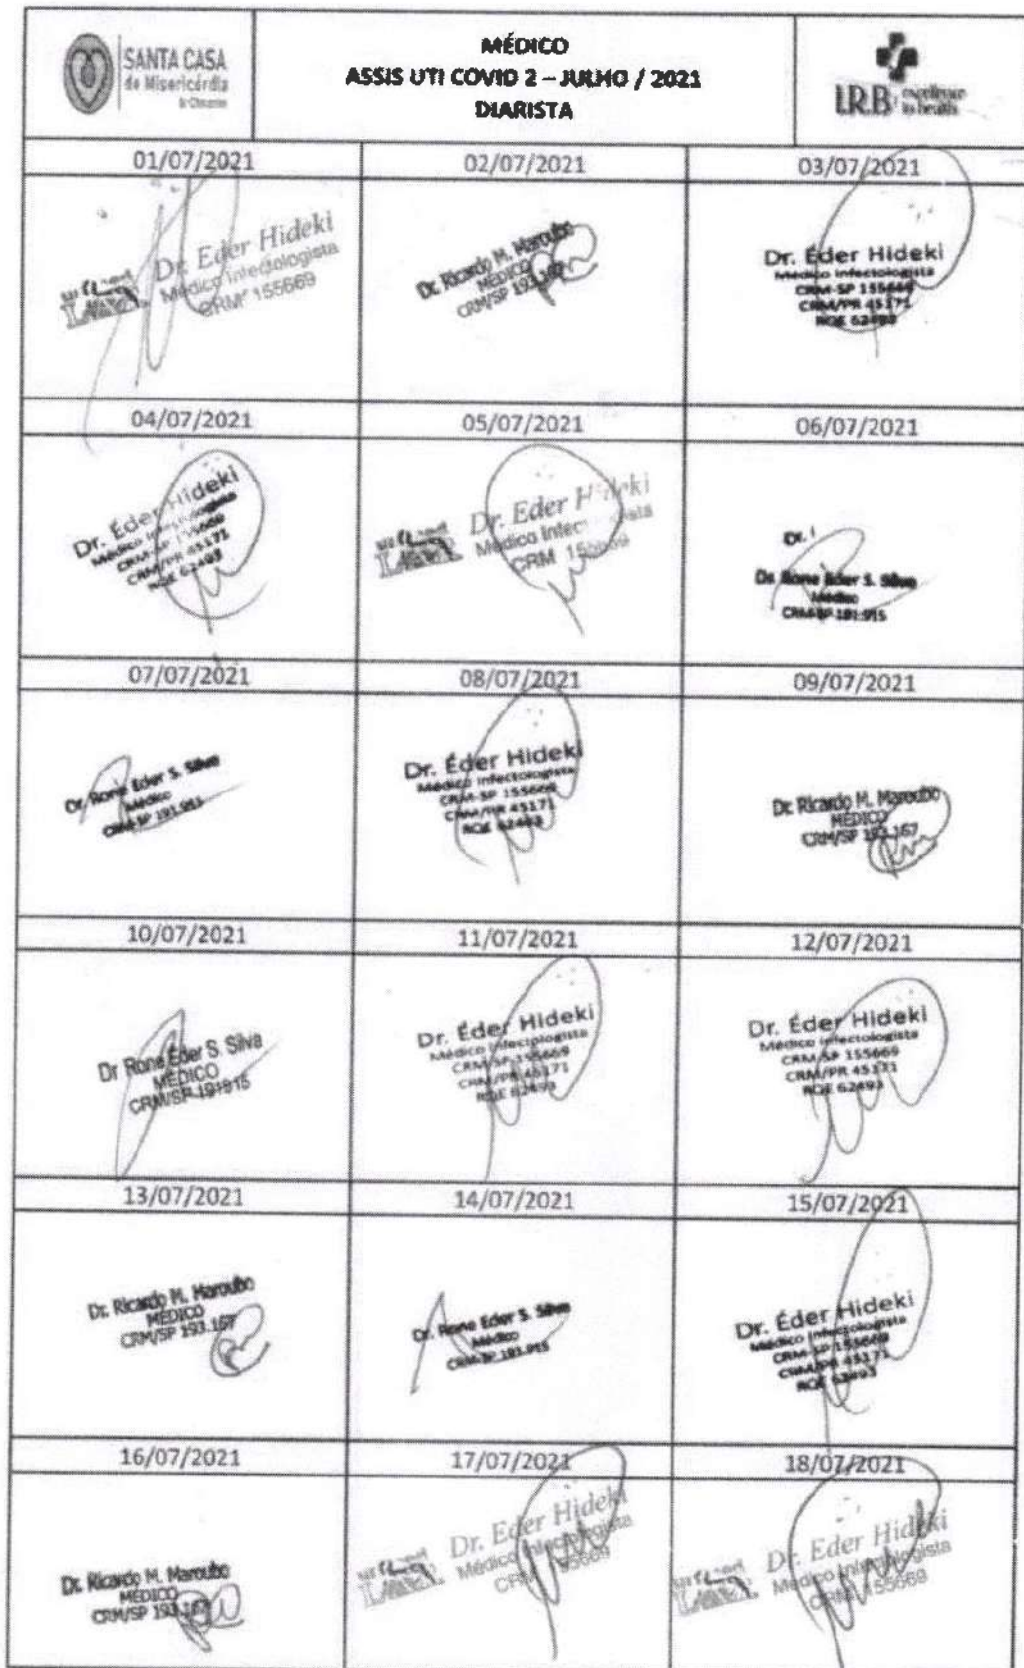 SANTA CASA
de Misericórdia
de Chavantes
MÉDICO
ASSIS UTI COVID 2 – JULHO / 2021
DIARISTA
I.R.B. excellence
in health
01/07/2021
02/07/2021
03/07/2021
Dr. Eder Hideki
Médico Infectologista
CRM 155669
Dr. Ricardo M. Maroubo
MÉDICO
CRM/SP 193.167
Dr. Éder Hideki
Médico Infectologista
CRM-SP 155669
CRM/PR 45171
RQE 62493
04/07/2021
05/07/2021
06/07/2021
Dr. Éder Hideki
Médico Infectologista
CRM-SP 155669
CRM/PR 45171
RQE 62493
Dr. Eder Hideki
Médico Infectologista
CRM 155669
Dr.
Dr. Rone Eder S. Silva
Médico
CRM-SP 191.915
07/07/2021
08/07/2021
09/07/2021
Dr. Rone Eder S. Silva
Médico
CRM-SP
Dr. Éder Hideki
Médico Infectologista
CRM-SP 155669
CRM/PR 45171
RQE 62493
Dr. Ricardo M. Maroubo
MÉDICO
CRM/SP 193.167
10/07/2021
11/07/2021
12/07/2021
Dr Rone Eder S. Silva
MÉDICO
CRM/SP 191915
Dr. Éder Hideki
Médico Infectologista
CRM-SP 155669
CRM/PR 45171
RQE 62493
Dr. Éder Hideki
Médico Infectologista
CRM-SP 155669
CRM/PR 45171
RQE 62493
13/07/2021
14/07/2021
15/07/2021
Dr. Ricardo M. Maroubo
MÉDICO
CRM/SP 193.167
Dr. Rone Eder S. Silva
Médico
CRM-SP 191.915
Dr. Éder Hideki
Médico Infectologista
CRM-SP 155669
CRM/PR 45171
RQE 62493
16/07/2021
17/07/2021
18/07/2021
Dr. Ricardo M. Maroubo
MÉDICO
CRM/SP 193.167
Dr. Eder Hideki
Médico Infectologista
CRM
Dr. Eder Hideki
Médico Infectologista
CRM 155669